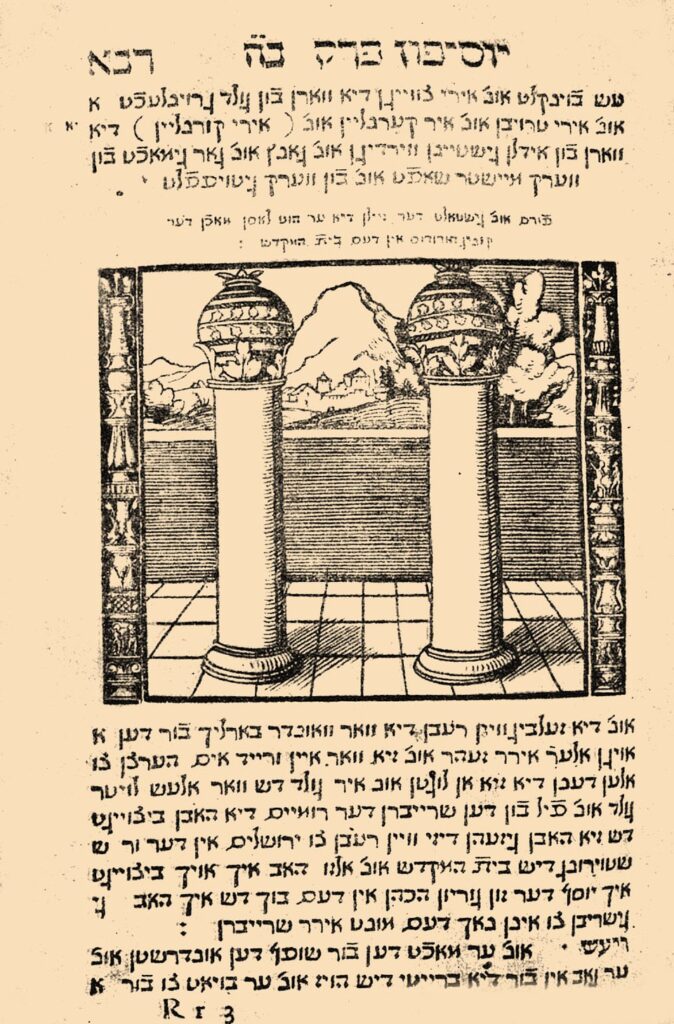 יוסיפון פרק נה רכא
עש בֿוינקלט אונ' אירי צווייגן דיא ווארן בֿון גולד א
אונ' אירי טרויבן אונ' איר קערנליין אונ' ( אירי קורנליין ) דיא
ווארן בֿון אידלן גשטיינן ווירדיגן אונ' גאנץ אונ' גאר גימאכֿט בֿון
ווערק מיישטר שאפֿט אונ' בֿון ווערק
פֿורם אונ' גשטאלט דער זיילן דיא ער הוט לאסן מאכֿן דער
קוניג הרודוס אין דעם בית המקדש :
אונ' דיא זעלביגן וויין רעבן דיא וואר וואונדר בארליך בֿור דען א
אויגן אלער אירר זעהר אונ' זיא וואר איין ורייד אים הערצן צו
אלען דענן דיא זיא אן לוגטן אונ' איר גולד דש וואר אלעש לויטר
גולד אונ' פֿיל בֿון דען שרייברן דער רומיים דיא האבן ביצוייגט
דש זיא האבן גיזעהן דיזי וויין רעבן צו ירושלים אין דער ור ש
שטוירונג דיש בית המקדש אונ' אלזו האב איך אויך ביצוייגט
איך יוסף דער זון גוריון הכהן אין דעם בוך דש איך האב גי
גישריבן צו אינן נאך דעם מונט אירר שרייברן :
אונ' ער מאכֿט דען בֿור שופֿף דען אונדרשטן אונ'
ער גאב אין בֿור דיא ברייטי דיש הויז אונ' ער בויאט צו בֿור א
R r 3